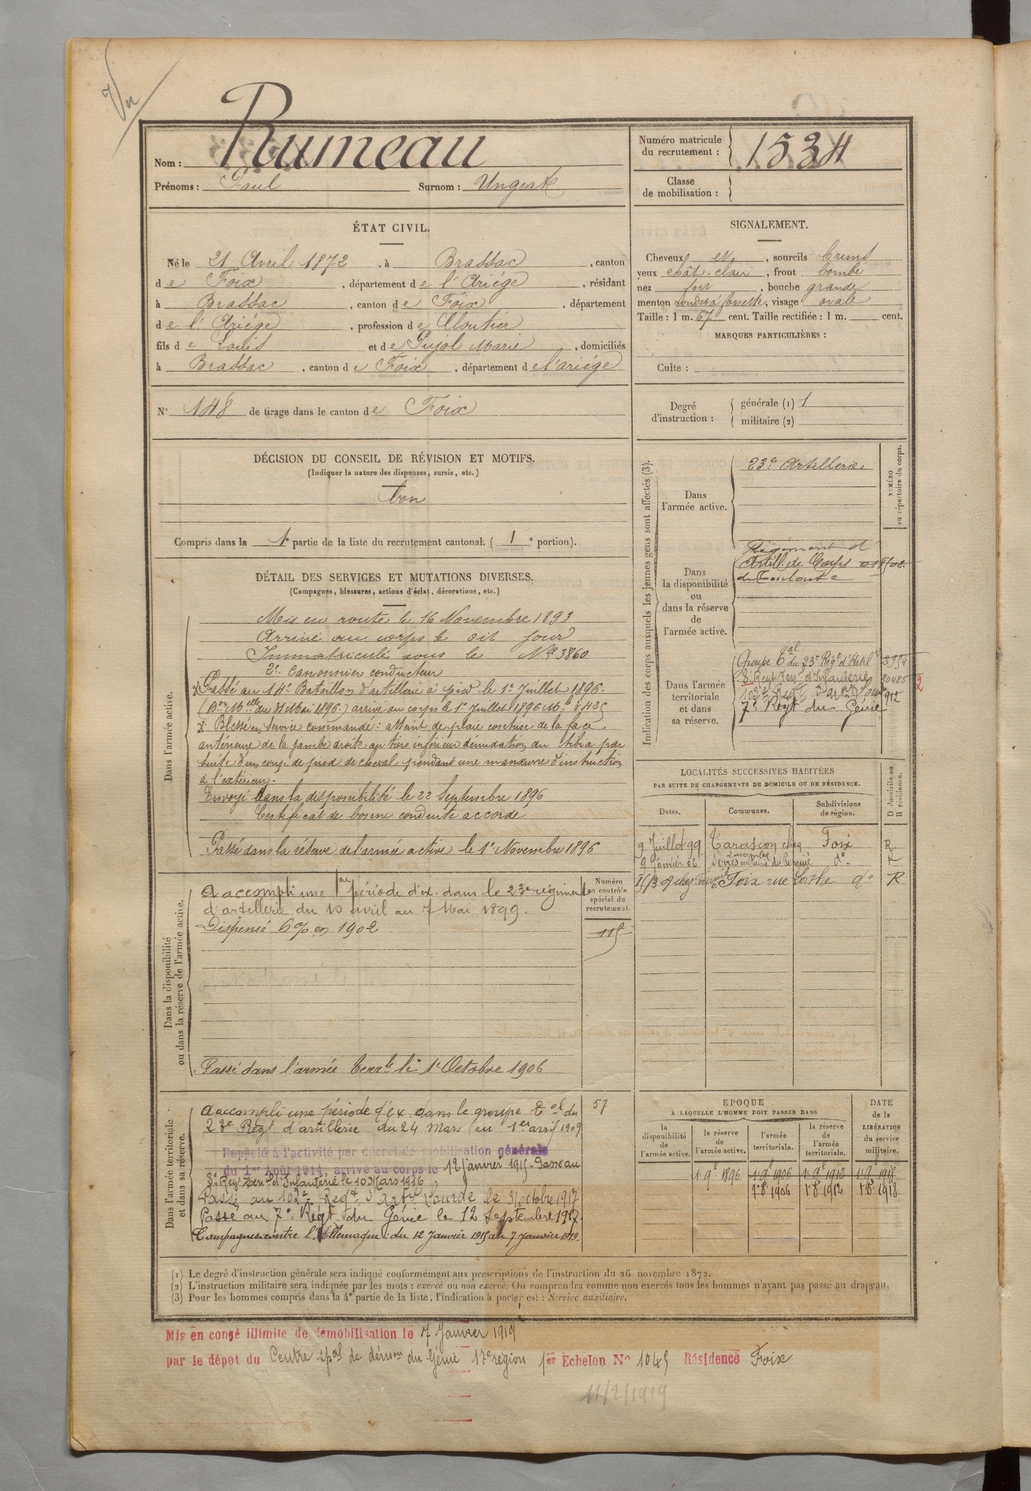 Nom : Rumeau
Prénoms : Paul Surnom :
Numéro matricule du recrutement : 1534
Classe de mobilisation :
ÉTAT CIVIL.
Né le 21 Avril 1872, à Brassac, canton
de Foix, département de l'Ariège, résidant
à Brassac, canton de Foix, département
de l'Ariège, profession de Cloutier
fils de Louis et de Pujol Marie, domiciliés
à Brassac, canton de Foix, département de l'ariége
N° 148 de tirage dans le canton de Foix
DÉCISION DU CONSEIL DE RÉVISION ET MOTIFS.
(Indiquer la nature des dispenses, sursis, etc.)
bon
Compris dans la 1e partie de la liste du recrutement cantonal. ( 1 e portion).
DÉTAIL DES SERVICES ET MUTATIONS DIVERSES.
(Campagnes, blessures, actions d'éclat, décorations, etc.)
Dans l'armée active.
Mis en route le 16 Novembre 1893
Arrivé au corps le dit jour
Immatriculé sous le N° 3860
2e Canonnier conducteur
Passé au 18e Bataillon d'artillerie à pied le 1er Juillet 1896.
arrivé au corps le 1er Juillet 1896
Blessé en service commandé : atteint de plaie contuse de la face
antérieure de la jambe droite au tiers inférieur dénudation du tibia par
suite d'un coup de pied de cheval pendant une manœuvre d'instruction
à l'extérieur.
Envoyé dans la disponibilité le 22 Septembre 1896
Certificat de bonne conduite accordé
Passé dans la réserve de l'armée active le 1er Novembre 1896
Dans la disponibilité ou dans la réserve de l'armée active.
A accompli une 1re période d'ex. dans le 23e régiment
d'artillerie du 10 avril au 7 Mai 1899.
Dispensé 6% en 1902
Numéro au contrôle spécial du recrutement.
115
Passé dans l'armée terrle le 1er Octobre 1906
Dans l'armée territoriale et dans sa réserve.
A accompli une période d'ex. dans le groupe Tal du 57
23e Régt d'artillerie du 24 mars au 1er avril 1909
Rappelé à l'activité par décret de mobilisation générale
du 1er Août 1914, arrivé au corps le 12 Janvier 1915. Passé au
Passé au 7e Régt du Génie le 12 Septembre 1917.
Campagnes contre l'Allemagne : du 12 Janvier 1915 au 7 Janvier 1919.
SIGNALEMENT.
Cheveux et, sourcils bruns
yeux chât. clair, front bombé
nez fort, bouche grande
menton rond à fossette, visage ovale
Taille : 1 m. 67 cent. Taille rectifiée : 1 m. cent.
MARQUES PARTICULIÈRES :
Culte :
Degré d'instruction : générale (1) 1
militaire (2)
Indication des corps auxquels les jeunes gens sont affectés (3).
NUMÉRO au répertoire du corps.
Dans l'armée active.
23e Artillerie.
Dans la disponibilité ou dans la réserve de l'armée active.
Régiment d'
Artill. de Corps
de Toulouse
Dans l'armée territoriale et dans sa réserve.
Groupe Tal du 23e Rég. d'Artil
7e Régt du Génie
LOCALITÉS SUCCESSIVES HABITÉES
PAR SUITE DE CHANGEMENTS DE DOMICILE OU DE RÉSIDENCE.
Dates. Communes. Subdivisions de région. D domicile ou R résidence.
9 Juillet 99 Tarascon Foix R.
Foix R
ÉPOQUE
À LAQUELLE L'HOMME DOIT PASSER DANS
la disponibilité de l'armée active. la réserve de l'armée active. l'armée territoriale. la réserve de l'armée territoriale.
DATE de la LIBÉRATION du service militaire.
(1) Le degré d'instruction générale sera indiqué conformément aux prescriptions de l'instruction du 26 novembre 1872.
(2) L'instruction militaire sera indiquée par les mots : exercé ou non exercé. On comprendra comme non exercés tous les hommes n'ayant pas passé au drapeau.
(3) Pour les hommes compris dans la 4e partie de la liste, l'indication à porter est : Service auxiliaire.
Mis en congé illimité de démobilisation le 7 Janvier 1919
par le dépôt du Centre du Génie 17e région 1er Échelon N° 1045 Résidence Foix
11/2/1919